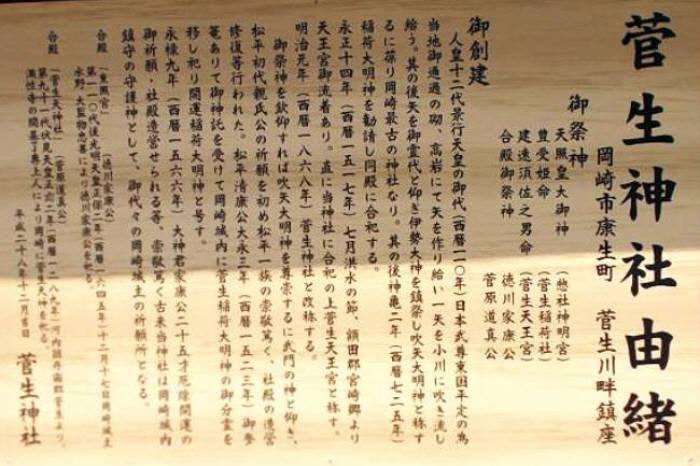 菅生神社由緒
岡崎市康生町 菅生川畔鎮座
御祭神
天照皇大御神 (惣社神明宮)
豊受姫命 (菅生稲荷社)
建速須佐之男命 (菅生天王宮)
合殿御祭神 徳川家康公
菅原道真公
御創建
人皇十二代景行天皇の御代(西暦一一〇年)日本武尊東国平定の為
当地御通過の砌、高岩にて矢を作り給い一矢を小川に吹き流し
給う。其の後矢を御霊代と仰ぎ伊勢大神を鎮祭し吹矢大明神と称す
るに葆り岡崎最古の神社なり。其の後神亀二年(西暦七二五年)
稲荷大明神を勧請し同殿に合祀する。
永正十四年(西暦一五一七年)七月洪水の節、額田郡宮崎郷より
天王宮御流着あり。直に当神社に合祀の上菅生天王宮と称す。
明治元年(西暦一八六八年)菅生神社と改称する。
御祭神を欽仰すれば吹矢大明神を尊崇するに武門の神と仰ぎ、
松平初代親氏公の祈願を初め松平一族の崇敬篤く、社殿の造営
修復等行われた。松平清康公大永三年(西暦一五二三年)御参
篭ありて御神託を受けて岡崎城内に菅生稲荷大明神の御分霊を
移し祀り開運稲荷大明神と号す。
永禄九年(西暦一五六六年)大神君家康公二十五才厄除開運の
御祈願・社殿造営せられる等、崇敬篤く古来当神社は岡崎城内
鎮守の守護神として、御代々の岡崎城主の祈願所となる。
合殿 「東照宮」 (徳川家康公)
第一一〇代後光明天皇正保二年(西暦一六四五年)十二月十七日岡崎城主
水野大監物忠善により徳川家康公を祀る。
合殿 「菅生天神社」 (菅原道真公)
第九十一代伏見天皇正応二年(西暦一二八九年)河内国丹南郡菅生より、
満性寺の開基了専上人により岡崎に菅生天神を祀る。
平成二十八年十二月吉日 菅生神社